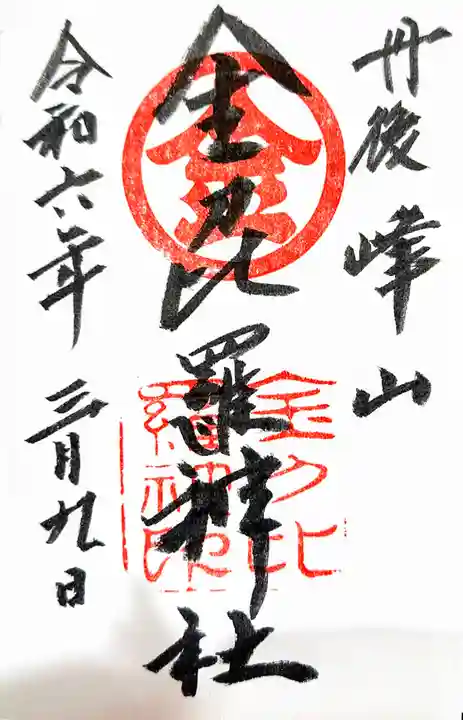 丹後峰山
金刀比羅神社
令和六年 三月九日
金
金刀比
羅神社
印